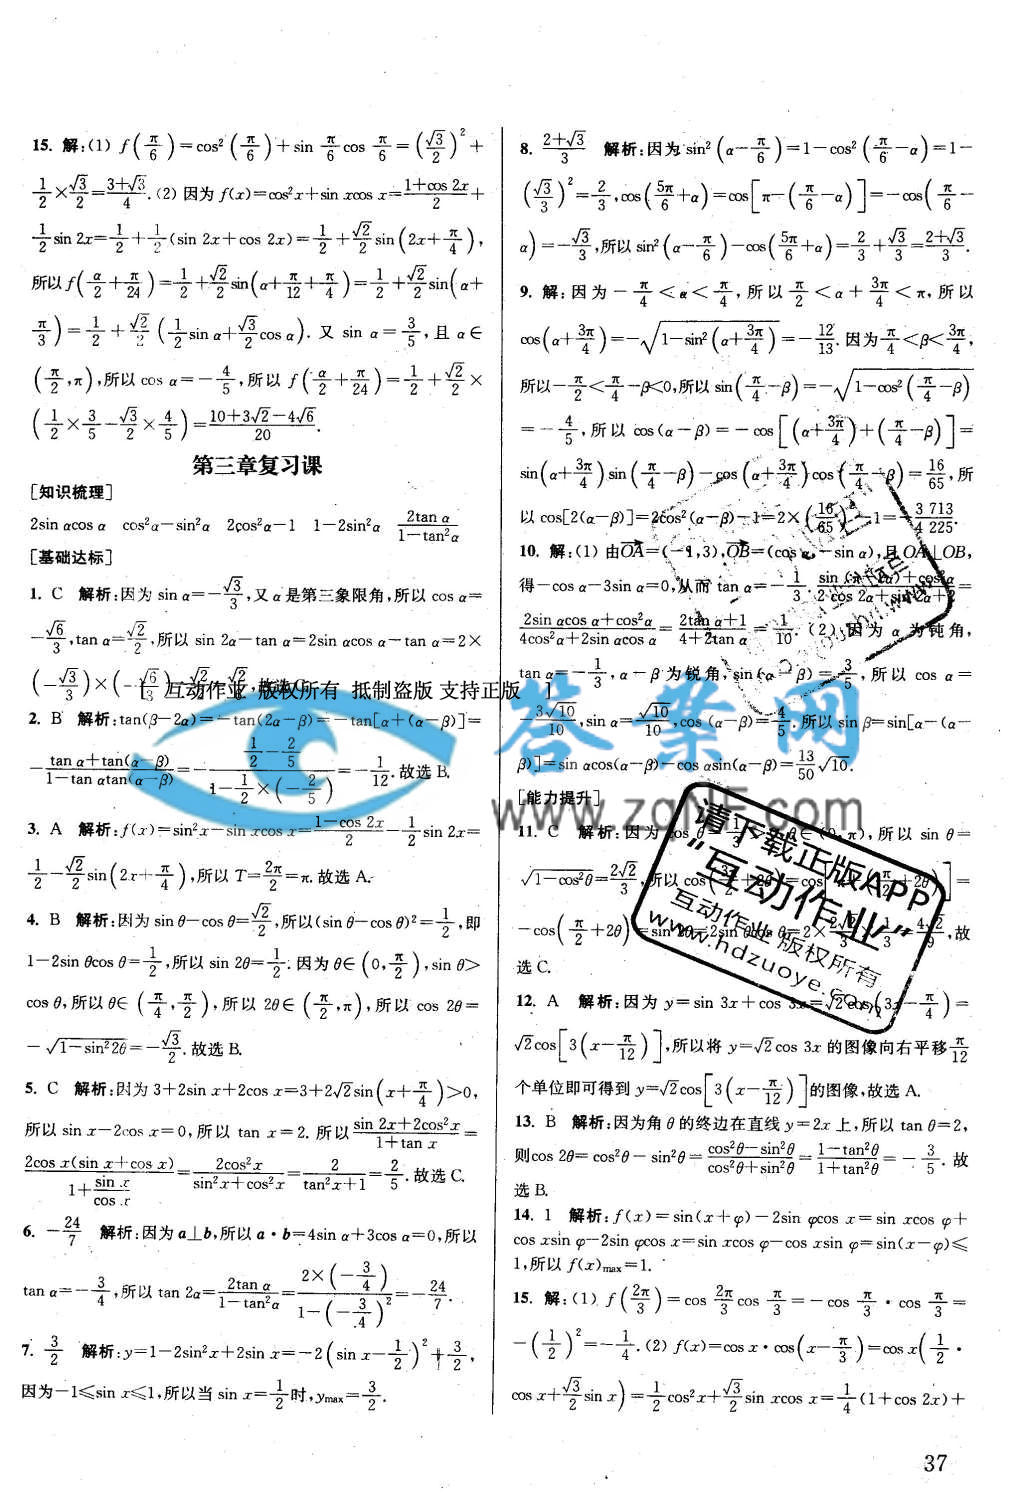 15. 解:(1) f(π/6)=cos²(π/6)+sin π/6 cos π/6=(√3/2)²+
1/2×√3/2=(3+√3)/4.(2) 因为 f(x)=cos²x+sin xcos x=(1+cos 2x)/2+
1/2 sin 2x=1/2+1/2(sin 2x+cos 2x)=1/2+√2/2 sin(2x+π/4),
所以f(α/2+π/24)=1/2+√2/2 sin(α+π/12+π/4)=1/2+√2/2 sin(α+
π/3)=1/2+√2/2(1/2 sin α+√3/2 cos α). 又 sin α=3/5,且 α∈
(π/2,π),所以 cos α=-4/5,所以 f(α/2+π/24)=1/2+√2/2×
(1/2×3/5-√3/2×4/5)=(10+3√2-4√6)/20.
第三章复习课
[知识梳理]
2sin αcos α cos²α-sin²α 2cos²α-1 1-2sin²α 2tan α/(1-tan²α)
[基础达标]
1. C 解析:因为 sin α=-√3/3,又 α 是第三象限角,所以 cos α=
-√6/3,tan α=√2/2,所以 sin 2α-tan α=2sin αcos α-tan α=2×
(-√3/3)×
[ 互动作业 版权所有 抵制盗版 支持正版 ]
2. B 解析:tan(β-2α)=-tan(2α-β)=-tan[α+(α-β)]=
-(tan α+tan(α-β))/(1-tan αtan(α-β))=-(1/2-2/5)/(1-1/2×(-2/5))=-1/12.故选 B.
3. A 解析:f(x)=sin²x-sin xcos x=(1-cos 2x)/2-1/2 sin 2x=
1/2-√2/2 sin(2x+π/4),所以 T=2π/2=π.故选 A.
4. B 解析:因为 sin θ-cos θ=√2/2,所以(sin θ-cos θ)²=1/2,即
1-2sin θcos θ=1/2,所以 sin 2θ=1/2. 因为 θ∈(0,π/2),sin θ>
cos θ,所以 θ∈(π/4,π/2),所以 2θ∈(π/2,π),所以 cos 2θ=
-√(1-sin²2θ)=-√3/2.故选 B.
5. C 解析:因为 3+2sin x+2cos x=3+2√2sin(x+π/4)>0,
所以 sin x-2cos x=0,所以 tan x=2. 所以(sin 2x+2cos²x)/(1+tan x)=
2cos x(sin x+cos x)/(1+sin x/cos x)=2cos²x/(sin²x+cos²x)=2/(tan²x+1)=2/5.故选 C.
6. -24/7 解析:因为 a⊥b,所以 a·b=4sin α+3cos α=0,所以
tan α=-3/4,所以 tan 2α=2tan α/(1-tan²α)=2×(-3/4)/(1-(-3/4)²)=-24/7.
7. 3/2 解析:y=1-2sin²x+2sin x=-2(sin x-1/2)²+3/2,
因为-1≤sin x≤1,所以当 sin x=1/2时,ymax=3/2.
8. (2+√3)/3 解析:因为 sin²(α-π/6)=1-cos²(π/6-α)=1-
(√3/3)²=2/3,cos(5π/6+α)=cos[π-(π/6-α)]=-cos(π/6-
α)=-√3/3,所以 sin²(α-π/6)-cos(5π/6+α)=2/3+√3/3=(2+√3)/3.
9. 解:因为-π/4<α<π/4,所以 π/2<α+3π/4<π,所以
cos(α+3π/4)=-√(1-sin²(α+3π/4))=-12/13. 因为 π/4<β<3π/4,
所以-π/2<π/4-β<0,所以 sin(π/4-β)=-√(1-cos²(π/4-β))
=-4/5,所以 cos(α-β)=-cos[(α+3π/4)+(π/4-β)]=
sin(α+3π/4)sin(π/4-β)-cos(α+3π/4)cos(π/4-β)=16/65,所
以 cos[2(α-β)]=2cos²(α-β)-1=2×(16/65)²-1=-3 713/4 225.
10. 解:(1) 由OA=(-1,3),OB=(cos α,-sin α),且 OA⊥OB,
得-cos α-3sin α=0,从而 tan α=-1/3.
(2sin αcos α+cos²α)/(4cos²α+2sin αcos α)=(2tan α+1)/(4+2tan α)=1/10.(2) 因为 α 为钝角,
tan α=-1/3,α-β 为锐角,sin(α-β)=3/5,所以 cos α=
-3√10/10,sin α=√10/10,cos(α-β)=4/5.所以 sin β=sin[α-(α-
β)]=sin αcos(α-β)-cos αsin(α-β)=13/50 √10.
[能力提升]
11. C 解析:因为 cos θ=-1/3,θ∈(0,π),所以 sin θ=
√(1-cos²θ)=2√2/3,所以
-cos(π/2+2θ)=sin 2θ=2sin θcos θ=2×,故
选 C.
12. A 解析:因为 y=sin 3x+cos 3x=√2cos(3x-π/4)=
√2cos[3(x-π/12)],所以将 y=√2cos 3x 的图像向右平移π/12
个单位即可得到 y=√2cos[3(x-π/12)]的图像,故选 A.
13. B 解析:因为角 θ 的终边在直线 y=2x 上,所以 tan θ=2,
则cos 2θ=cos²θ-sin²θ=(cos²θ-sin²θ)/(cos²θ+sin²θ)=(1-tan²θ)/(1+tan²θ)=-3/5. 故
选 B.
14. 1 解析:f(x)=sin(x+φ)-2sin φcos x=sin xcos φ+
cos xsin φ-2sin φcos x=sin xcos φ-cos xsin φ=sin(x-φ)≤
1,所以 f(x)max=1.
15. 解:(1) f(2π/3)=cos 2π/3 cos π/3=-cos π/3·cos π/3=
-(1/2)²=-1/4.(2) f(x)=cos x·cos(x-π/3)=cos x(1/2·
cos x+√3/2 sin x)=1/2 cos²x+√3/2 sin xcos x=1/4(1+cos 2x)+
答案网
www.zqnf.com
请下载正版APP
"互动作业"
互动作业 版权所有
www.hdzuoye.com
37